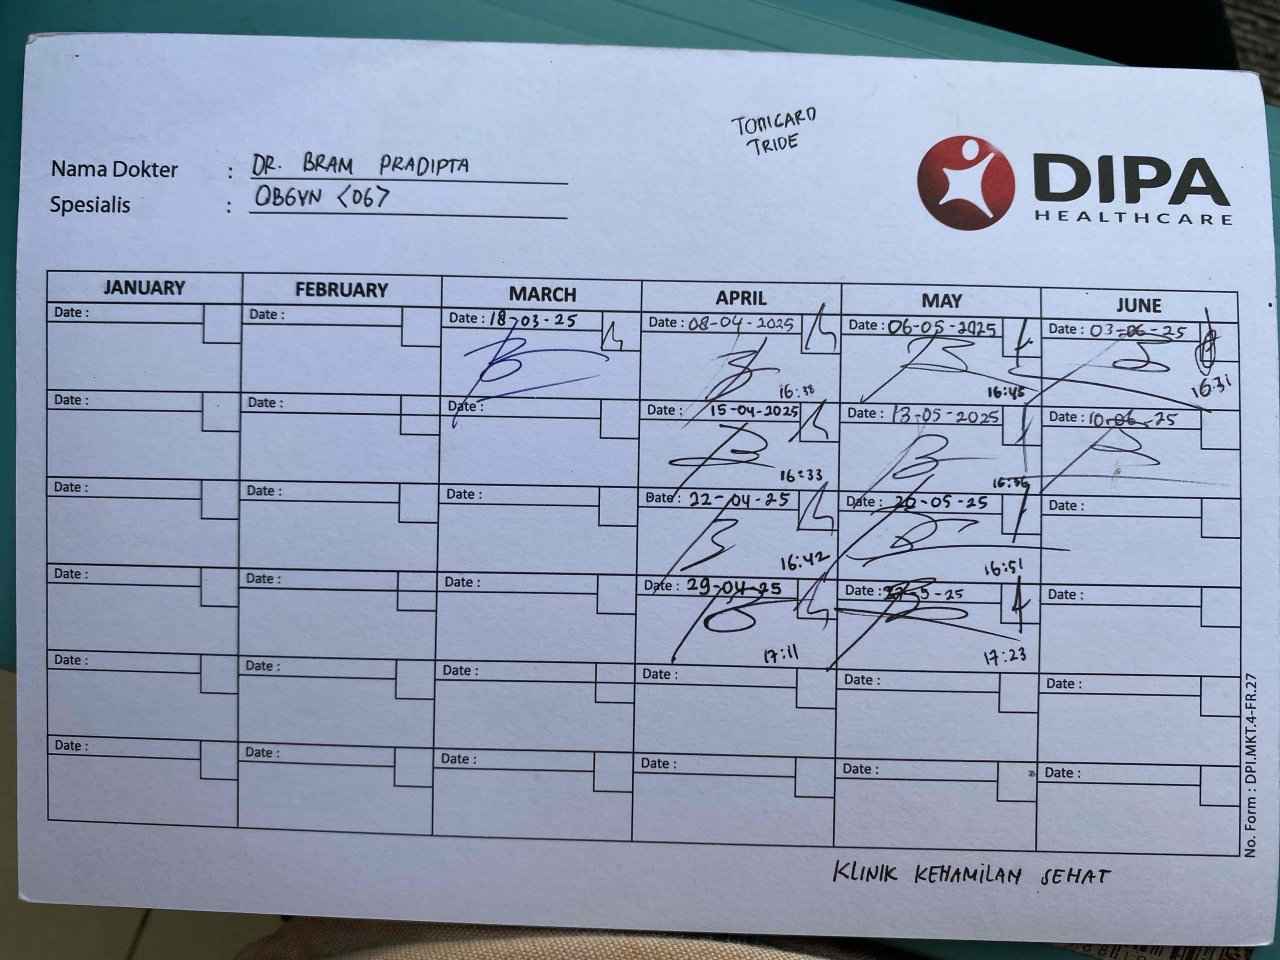 TONICARD
TRIDE
DIPA
HEALTHCARE
Nama Dokter : DR. BRAM PRADIPTA
Spesialis : OBGYN <06>
JANUARY FEBRUARY MARCH APRIL MAY JUNE
Date : Date : Date : 18-03-25 Date : 08-04-2025 Date : 06-05-2025 Date : 03-06-25
16:38 16:45 16:31
Date : Date : Date : Date : 15-04-2025 Date : 13-05-2025 Date : 10-06-25
16:33
Date : Date : Date : Date : 22-04-25 Date : 20-05-25 Date :
16:42 16:51
Date : Date : Date : Date : 29-04-25 Date : Date :
17:11 17:23
Date : Date : Date : Date : Date : Date :
Date : Date : Date : Date : Date : Date :
No. Form : DPI.MKT.4-FR.27
KLINIK KEHAMILAN SEHAT